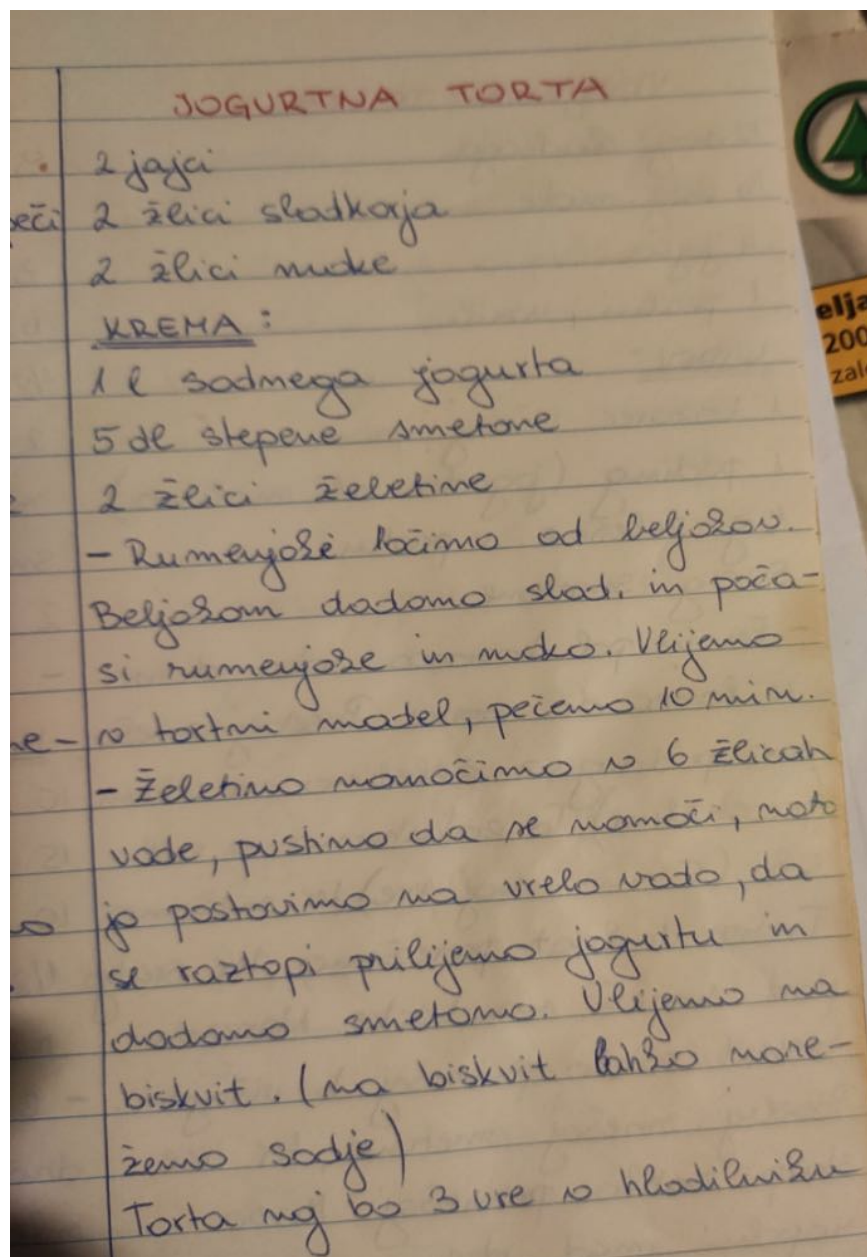 JOGURTNA TORTA
2 jajci
eči
2 žlici sladkorja
2 žlici moke
KREMA:
elja
200
zal
1 l sadnega jogurta
5 dl stepene smetane
2 žlici želetine
- Rumenjake ločimo od beljakov.
Beljakom dodamo slad. in poča-
si rumenjake in moko. Vlijemo
e-
v tortni model, pečemo 10 min.
- Želetino namočimo v 6 žlicah
vode, pustimo da se namoči, nato
jo postavimo na vrelo vodo, da
se raztopi prilijemo jogurtu in
dodamo smetano. Vlijemo na
biskvit. (na biskvit lahko nare-
žemo sadje)
Torta naj bo 3 ure v hladilniku